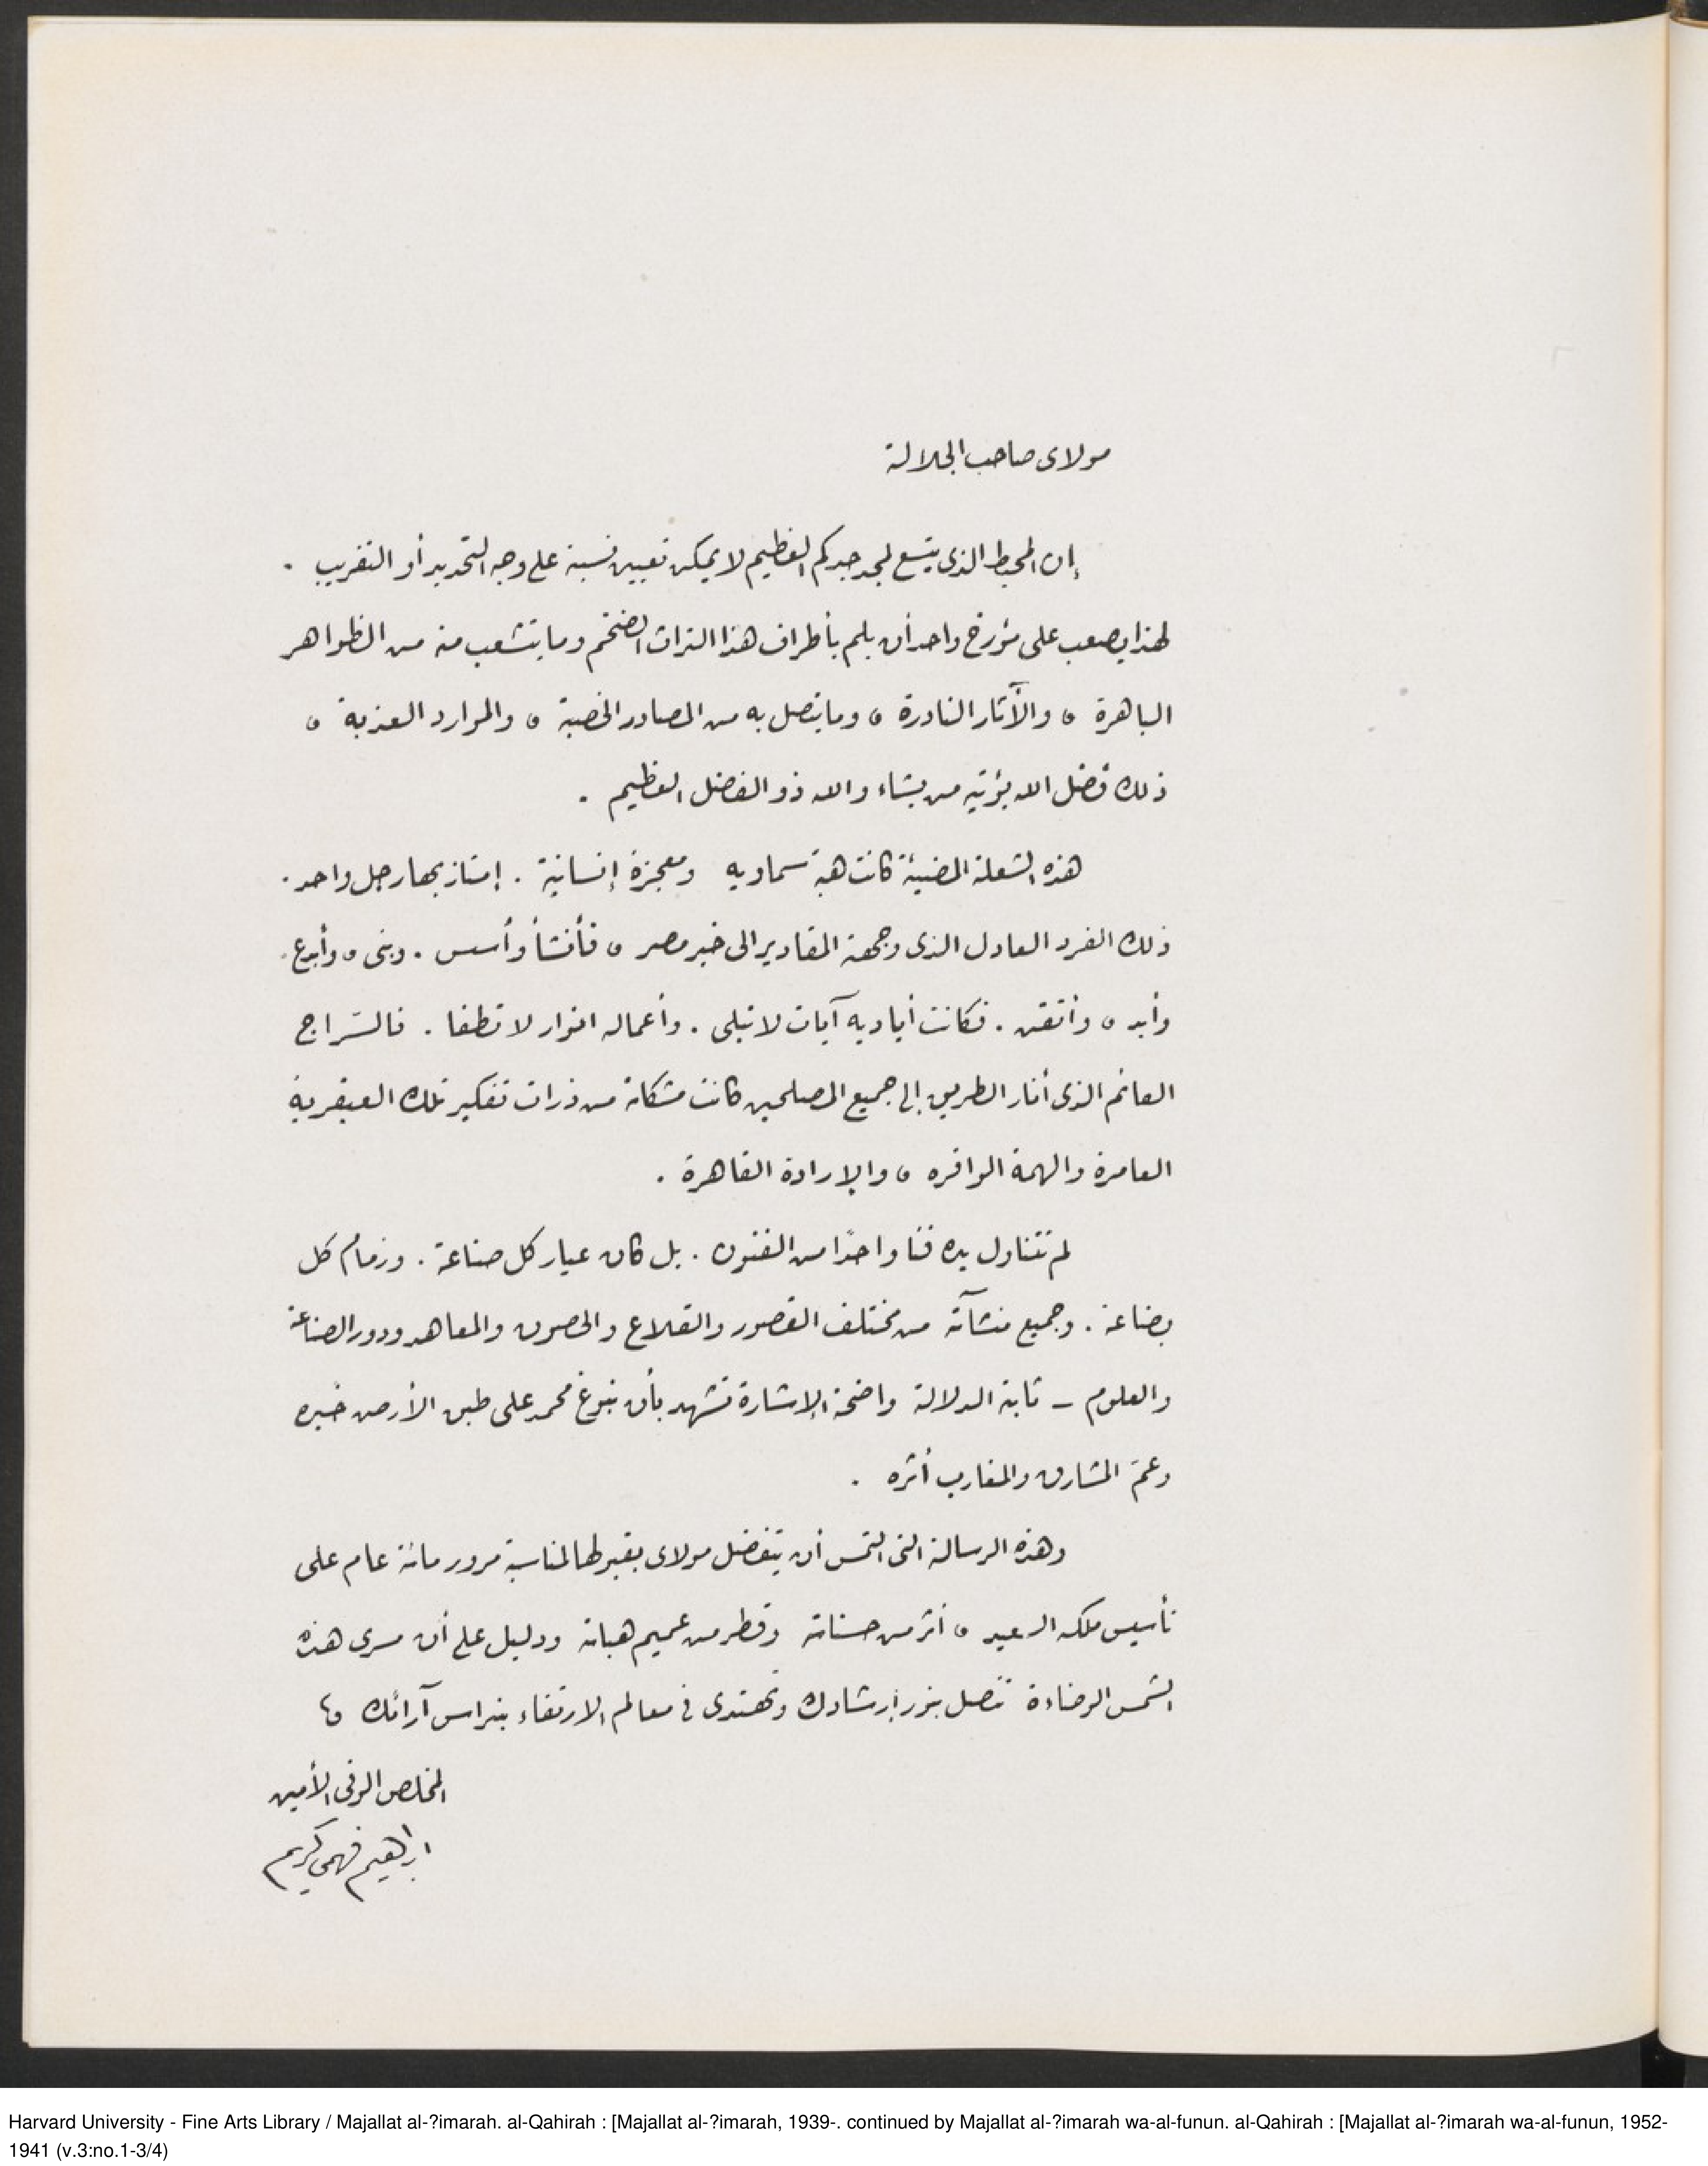 مولاى صاحب الجلالة
إن المحيط الذى يتسع لمجد جدكم العظيم لا يمكن تعيين نسبة على وجه التحديد أو التقريب .
لهذا يصعب على مؤرخ واحد أن يلم بأطراف هذا التراث الضخم وما يتشعب منه من الظواهر
الباهرة ، والآثار النادرة ، وما يتصل به من المصادر الخصبة ، والموارد العذبة ،
ذلك فضل الله يؤتيه من يشاء والله ذو الفضل العظيم .
هذه الشعلة المضيئة كانت هبة سماويه ومعجزة إنسانية . إمتاز بها رجل واحد .
ذلك الفرد العادل الذى وجهته المقادير الى خير مصر ، فأنشأ وأسس . وبنى ، وأبدع .
وأيد ، وأتقن . فكانت أياديه آيات لا تبلى . وأعماله انوار لا تطفا . فالسّراج
الذى أنار الطريق إلى جميع المصلحين كانت مشكاته من ذرات تفكير تلك العبقرية
العامرة والهمة الوافره ، والإرادة القاهرة .
لم تتناول يده فنا واحدًا من الفنون . بل كان عيار كل صناعة . وزمام كل
بضاعة . وجميع منشآته من مختلف القصور والقلاع والحصون والمعاهد ودور الصناعة
والعلوم - ثابتة الدلالة واضحة الإشارة تشهد بأن نبوغ محمد على طبق الأرض خبره
وعمّ المشارق والمغارب أثره .
وهذه الرسالة التى التمس أن يتفضل مولاى بقبولها لمناسبة مرور مائة عام على
تأسيس ملكه السعيد ، أثر من حسناته وقطر من عميم هباته ودليل على أن مسرى هذه
الشمس الوضاءة تتصل بنور إرشادك وتهتدى فى معالم الارتقاء بنبراس آرائك ،
المخلص الوفى الأمين
ابراهيم فهمى كريم
Harvard University - Fine Arts Library / Majallat al-?imarah. al-Qahirah : [Majallat al-?imarah, 1939-. continued by Majallat al-?imarah wa-al-funun. al-Qahirah : [Majallat al-?imarah wa-al-funun, 1952-
1941 (v.3:no.1-3/4)